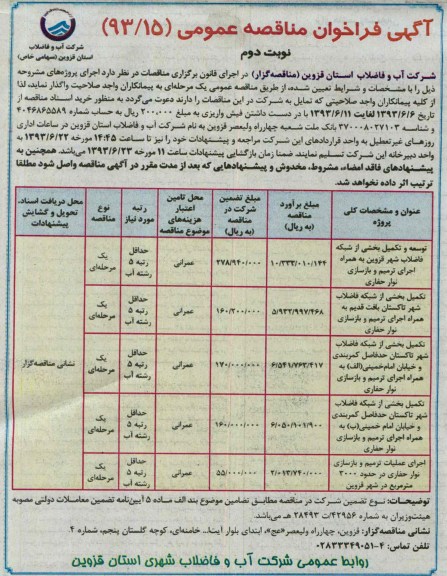 آگهی فراخوان مناقصه عمومی (۹۳/۱۵)
نوبت دوم
شرکت آب و فاضلاب
استان قزوین (سهامی خاص)
شرکت آب و فاضلاب استان قزوین (مناقصه‌گزار) در اجرای قانون برگزاری مناقصات در نظر دارد اجرای پروژه‌های مشروحه
ذیل را با مشخصات و شرایط تعیین شده، از طریق مناقصه عمومی یک مرحله‌ای به پیمانکاران واجد صلاحیت واگذار نماید، لذا
از کلیه پیمانکاران واجد صلاحیتی که تمایل به شرکت در این مناقصات را دارند دعوت می‌گردد به منظور خرید اسناد مناقصه از
تاریخ ۱۳۹۳/۶/۶ لغایت ۱۳۹۳/۶/۱۱ با در دست داشتن فیش واریزی به مبلغ ۲۰۰,۰۰۰ ریال به حساب شماره ۴۰۴۶۸۵۵۸۹
و شناسه ۳۷۰۰۰۸۰۲۷۱۰۳ بانک ملت شعبه چهارراه ولیعصر قزوین به نام شرکت آب و فاضلاب استان قزوین در ساعات اداری
روزهای غیرتعطیل به واحد قراردادهای این شرکت مراجعه و پیشنهادات خود را نیز تا ساعت ۱۴:۴۵ مورخه ۱۳۹۳/۶/۲۲ به
واحد دبیرخانه این شرکت تسلیم نمایند، ضمنا زمان بازگشایی پیشنهادات ساعت ۱۱ مورخه ۱۳۹۳/۶/۲۳ می‌باشد. همچنین به
پیشنهادهای فاقد امضاء، مشروط، مخدوش و پیشنهادهایی که بعد از مدت مقرر در آگهی مناقصه واصل شود مطلقا
ترتیب اثر داده نخواهد شد.
عنوان و مشخصات کلی پروژه | مبلغ برآورد مناقصه (به ریال) | مبلغ تضمین شرکت در مناقصه (به ریال) | محل تامین اعتبار هزینه‌های موضوع مناقصه | رتبه مورد نیاز | نوع مناقصه | محل دریافت اسناد، تحویل و گشایش پیشنهادات
توسعه و تکمیل بخشی از شبکه فاضلاب شهر قزوین به همراه اجرای ترمیم و بازسازی نوار حفاری | ۱۰/۲۳۳/۰۱۰/۱۴۴ | ۲۷۸/۹۴۰/۰۰۰ | عمرانی | حداقل رتبه ۵ رشته آب | یک مرحله‌ای | نشانی مناقصه‌گزار
تکمیل بخشی از شبکه فاضلاب شهر تاکستان بافت قدیم به همراه اجرای ترمیم و بازسازی نوار حفاری | ۵/۹۳۲/۹۹۷/۴۶۸ | ۱۶۰/۲۰۰/۰۰۰ | عمرانی | حداقل رتبه ۵ رشته آب | یک مرحله‌ای
تکمیل بخشی از شبکه فاضلاب شهر تاکستان حدفاصل کمربندی و خیابان امام‌خمینی(الف) به همراه اجرای ترمیم و بازسازی نوار حفاری | ۶/۵۴۱/۷۶۳/۴۱۷ | ۱۷۰/۰۰۰/۰۰۰ | عمرانی | حداقل رتبه ۵ رشته آب | یک مرحله‌ای
تکمیل بخشی از شبکه فاضلاب شهر تاکستان حدفاصل کمربندی و خیابان امام خمینی(ب) به همراه اجرای ترمیم و بازسازی نوار حفاری | ۶/۰۵۰/۱۰۱/۹۰۰ | ۱۶۰/۰۰۰/۰۰۰ | عمرانی | حداقل رتبه ۵ رشته آب | یک مرحله‌ای
اجرای عملیات ترمیم و بازسازی نوار حفاری در حدود ۲۰۰۰ مترمربع در شهر قزوین | ۲/۰۱۳/۷۴۰/۰۰۰ | ۵۵/۰۰۰/۰۰۰ | عمرانی | حداقل رتبه ۵ رشته آب | یک مرحله‌ای
توضیحات: نوع تضمین شرکت در مناقصه مطابق تضامین موضوع بند الف ماده ۵ آیین‌نامه تضمین معاملات دولتی مصوبه
هیئت‌وزیران به شماره ۴۲۹۵۶/ت ۲۸۴۹۳ هـ می‌باشد.
نشانی مناقصه‌گزار: قزوین، چهارراه ولیعصر«عج»، ابتدای بلوار آیت‌ا.. خامنه‌ای، کوچه گلستان پنجم، شماره ۴
تلفن تماس: ۴-۰۲۸۳۳۳۴۹۰۵۱
روابط عمومی شرکت آب و فاضلاب شهری استان قزوین